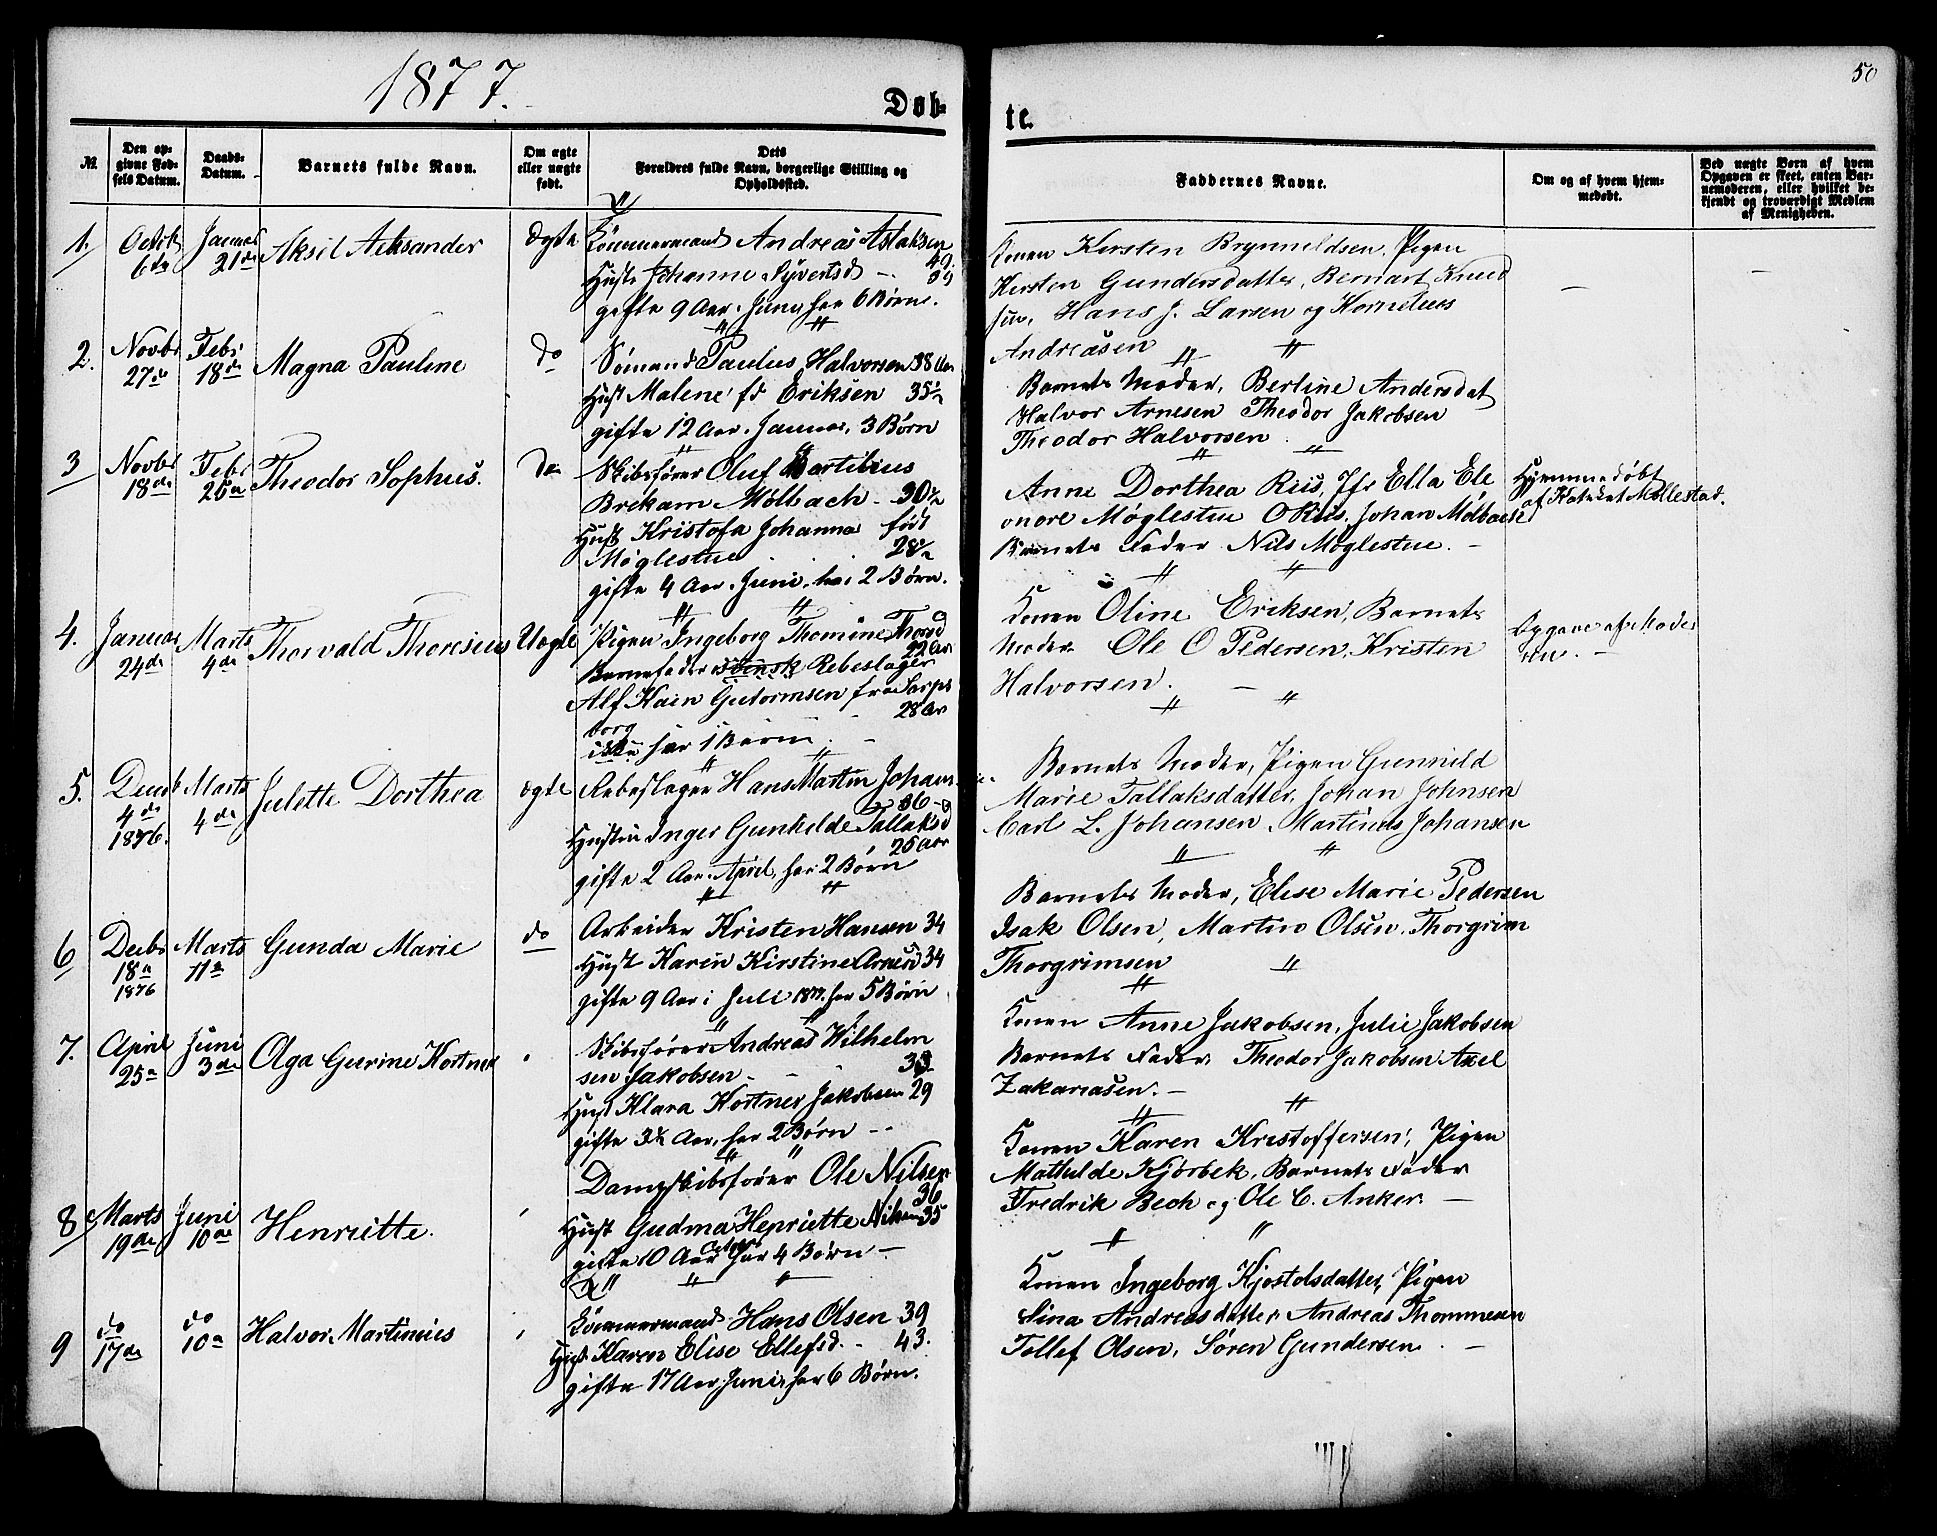 1877.
50
Døb-
te.
№
Den op-
givne Fød-
sels Datum.
Daabs-
Datum.
Barnets fulde Navn.
Om ægte
eller uægte
født.
Dets
Forældres fulde Navn, borgerlige Stilling og
Opholdssted.
Faddernes Navne.
Om og af hvem hjem-
medøbt.
Ved uægte Børn af hvem
Opgaven er skeet, enten Bar-
nemoderen, eller hvilket be-
kjendt og troværdigt Medlem
af Menigheden.
1.
Octbr
6de
Januar
21de
Aksil Aleksander
Ægte
Tømmermand Andreas Aslaksen
49
Hust Johanne Syvertsd - 39
gifte 9 Aar. Januar har 6 Børn.
Konen Kersten Brynnildsen. Pigen
Kersten Gundersdatter, Bernart Knud
sen, Hans J. Larsen og Kornelius
Andreasen
2.
Novbr
27de
Febr
18de
Magna Pauline
do
Sømand Paulus Halvorsen 38 Aar
Hust Malene fd Eriksen 35
gifte 12 Aar. Januar. 3 Børn
Barnets Moder, Berline Andersdat
Halvor Arnesen Theodor Jakobsen
Theodor Halvorsen
3
Novbr
18de
Febr
25
Theodor Sophus.
do
Skibsfører Oluf Bartilius
Brekam Mølbach - 30
Hust Kristofa Johanna født
Møglestue 28
gifte 4 Aar. Juni. har 2 Børn.
Anne Dorthea Riis, Jfr Ella Ele
onore Møglestue O Riis. Johan Mølbach
Barnets Fader Nils Møglestue. -
Hjemmedøbt
af Katiket Møllestad.
4.
Januar
24de
Marts
4de
Thorvald Thoresius
Uægte
Pigen Ingeborg Thomine Thorsd
22 Aar
Barnefader svensk Rebeslager
Alf Kain Gutormsen fra Sarps
28 Ar
borg
ikke har 1 Børn.
Konen Oline Eriksen, Barnets
Moder Ole O Pedersen, Kristen
Halvorsen.
Opgave af Mode
ren. -
5.
Decmb
4de
1876.
Marts
4de
Julette Dorthea
ægte
Rebeslager Hans Martin Johan
36
Hustru Inger Gunhilde Tallaksd
25 aar
gifte 2 Aar. April, har 2 Børn
Barnets Moder, Pigen Gunnild
Marie Tallaksdatter, Johan Johnsen
Carl L. Johansen, Martinus Johansen
6
Decbr
18
1876
Marts
11
Gunda Marie
do
Arbeider Kristen Hansen 34
Hust Karen Kirstine Arnesd 34
gifte 9 Aar i Juli 1877. har 5 Børn
Barnets Moder, Elise Marie Pedersen
Isak Olsen, Martin Olsen. Thorgrim
Thorgrimsen
7.
April
25
Juni
3de
Olga Gurine Kortner
Skibsfører Andreas Wilhelm
sen Jakobsen - 33
Hust Klara Kortner Jakobsen 29
gifte 3½ Aar, har 2 Børn - -
Konen Anne Jakobsen, Julie Jakobsen
Barnets Fader Theodor Jakobsen Axel
Zakariasen. -
8
Marts
19de
Juni
10de
Henriette.
Dampskibsfører Ole Nilsen
36
Hust Gudma Henriette Nilsen 35
gifte 10 Aar har 4 Børn -
Konen Karen Kristoffersen, Pigen
Mathilde Kjørbek, Barnets Fader
Fredrik Bech og Ole C. Anker. -
9
do
17de
do
10
Halvor Martinius
Tømmermand Hans Olsen 39
Hust Karen Elise Ellefsd. - 43.
gifte 17 Aar Juni, har 6 Børn.
Konen Ingeborg Kjostolsdatter, Pigen
Sina Andreasdatter Andreas Thommesen
Tollef Olsen, Søren Gundersen. -